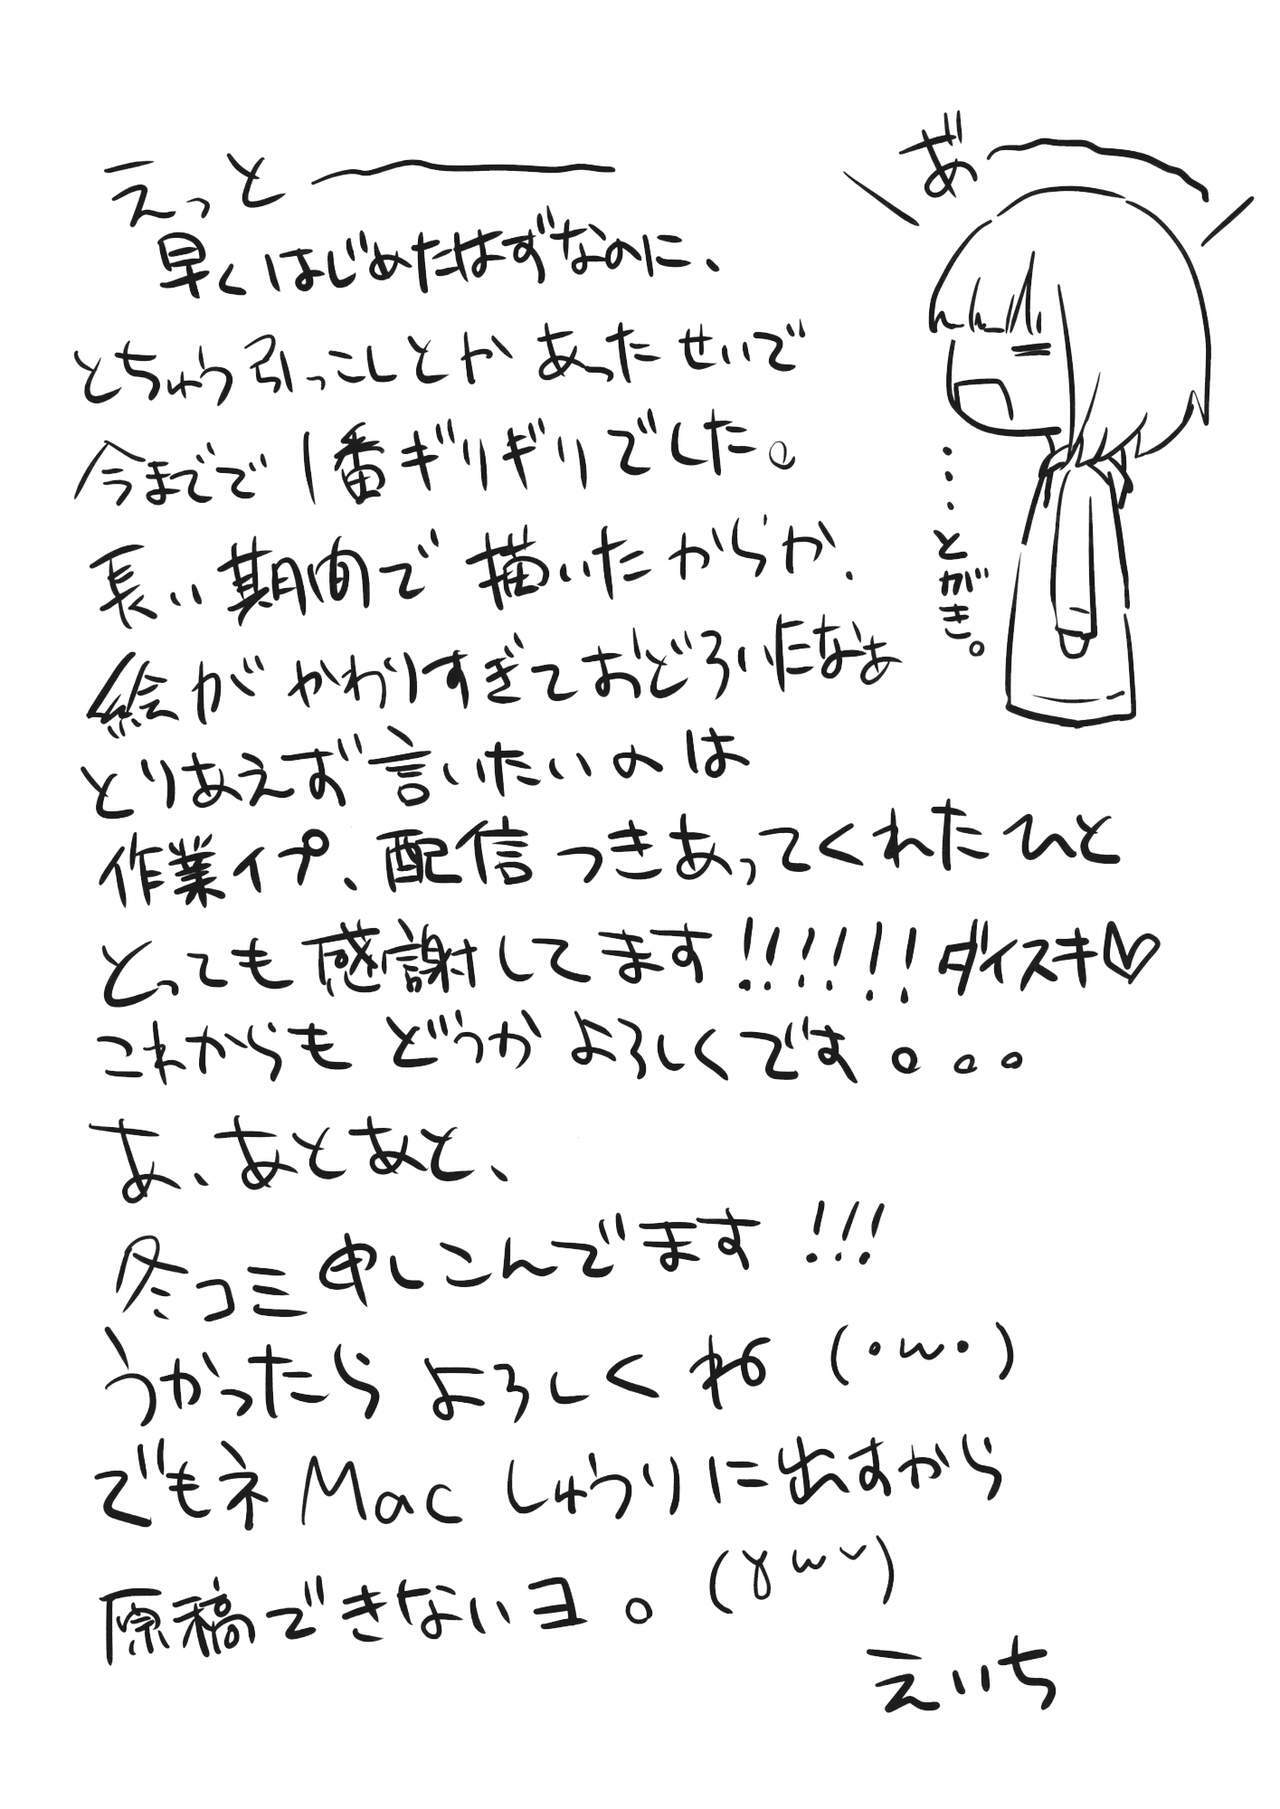 えっと〜
早くはじめたはずなのに、
とちゅう引っこしとかあったせいで
今までで1番ギリギリでした。
長い期間で描いたからか、
絵がかわりすぎておどろいたなぁ
とりあえず言いたいのは
作業イプ、配信つきあってくれたひと
とっても感謝してます!!!!!!ダイスキ♡
これからもどうかよろしくです。。。
あ、あとあと、
冬コミ申しこんでます!!!
うかったらよろしくね(・ω・)
でもネMacしゅうりに出すから
原稿できないヨ。
えいち
あ゛〜
…とがき。